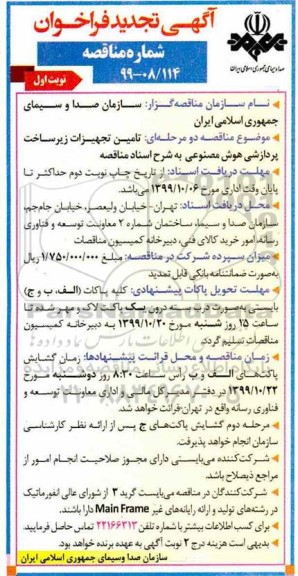 آگهی تجدید فراخوان
شماره مناقصه
۹۹-۰۸/۱۱۴
نوبت اول
صدا و سیمای جمهوری اسلامی ایران
نام سازمان مناقصه‌گزار: سازمان صدا و سیمای
جمهوری اسلامی ایران
موضوع مناقصه دو مرحله‌ای: تامین تجهیزات زیرساخت
پردازشی هوش مصنوعی به شرح اسناد مناقصه
مهلت دریافت اسناد: از تاریخ چاپ نوبت دوم حداکثر تا
پایان وقت اداری مورخ ۱۳۹۹/۱۰/۰۶ می‌باشد.
محل دریافت اسناد: تهران- خیابان ولیعصر، خیابان جام‌جم،
سازمان صدا و سیما، ساختمان شماره ۲ معاونت توسعه و فناوری
رسانه، امور خرید کالای فنی، دبیرخانه کمیسیون مناقصات
میزان سپرده شرکت در مناقصه: مبلغ ۱/۷۵۰/۰۰۰/۰۰۰ ریال
به‌صورت ضمانتنامه بانکی قابل تمدید
مهلت تحویل پاکات پیشنهادی: کلیه پاکات (الف، ب و ج)
بایستی به‌صورت دربسته و درون یک پاکت لاک و مهر شده تا
ساعت ۱۵ روز شنبه مورخ ۱۳۹۹/۱۰/۲۰ به دبیرخانه کمیسیون
مناقصات تسلیم گردد.
زمان مناقصه و محل قرائت پیشنهادها: زمان گشایش
پاکت‌های الف و ب راس ساعت ۸:۳۰ روز دوشنبه مورخ
۱۳۹۹/۱۰/۲۲ در دفتر مدیرکل مالی و اداری معاونت توسعه و
فناوری رسانه واقع در تهران قرائت خواهد شد.
مرحله دوم گشایش پاکت‌های ج پس از ارائه نظر کارشناسی
سازمان انجام خواهد پذیرفت.
شرکت‌کننده می‌بایستی دارای مجوز صلاحیت انجام امور از
مراجع ذیصلاح باشد.
شرکت‌کنندگان در مناقصه می‌بایست گرید ۳ از شورای عالی انفورماتیک
در رشته‌های تولید و ارائه رایانه‌های غیر Main Frame دارا باشند.
برای کسب اطلاعات بیشتر با شماره تلفن ۲۲۱۶۶۳۱۳ تماس حاصل فرمایید.
بدیهی است هزینه درج ۲ نوبت آگهی به عهده برنده خواهد بود.
سازمان صدا وسیمای جمهوری اسلامی ایران